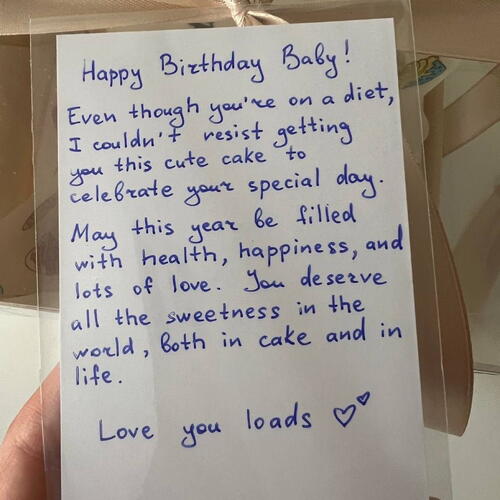 Happy Birthday Baby!
Even though you're on a diet,
I couldn't resist getting
you this cute cake to
celebrate your special day.
May this year be filled
with health, happiness, and
lots of love. You deserve
all the sweetness in the
world, both in cake and in
life.
Love you loads ♡♡